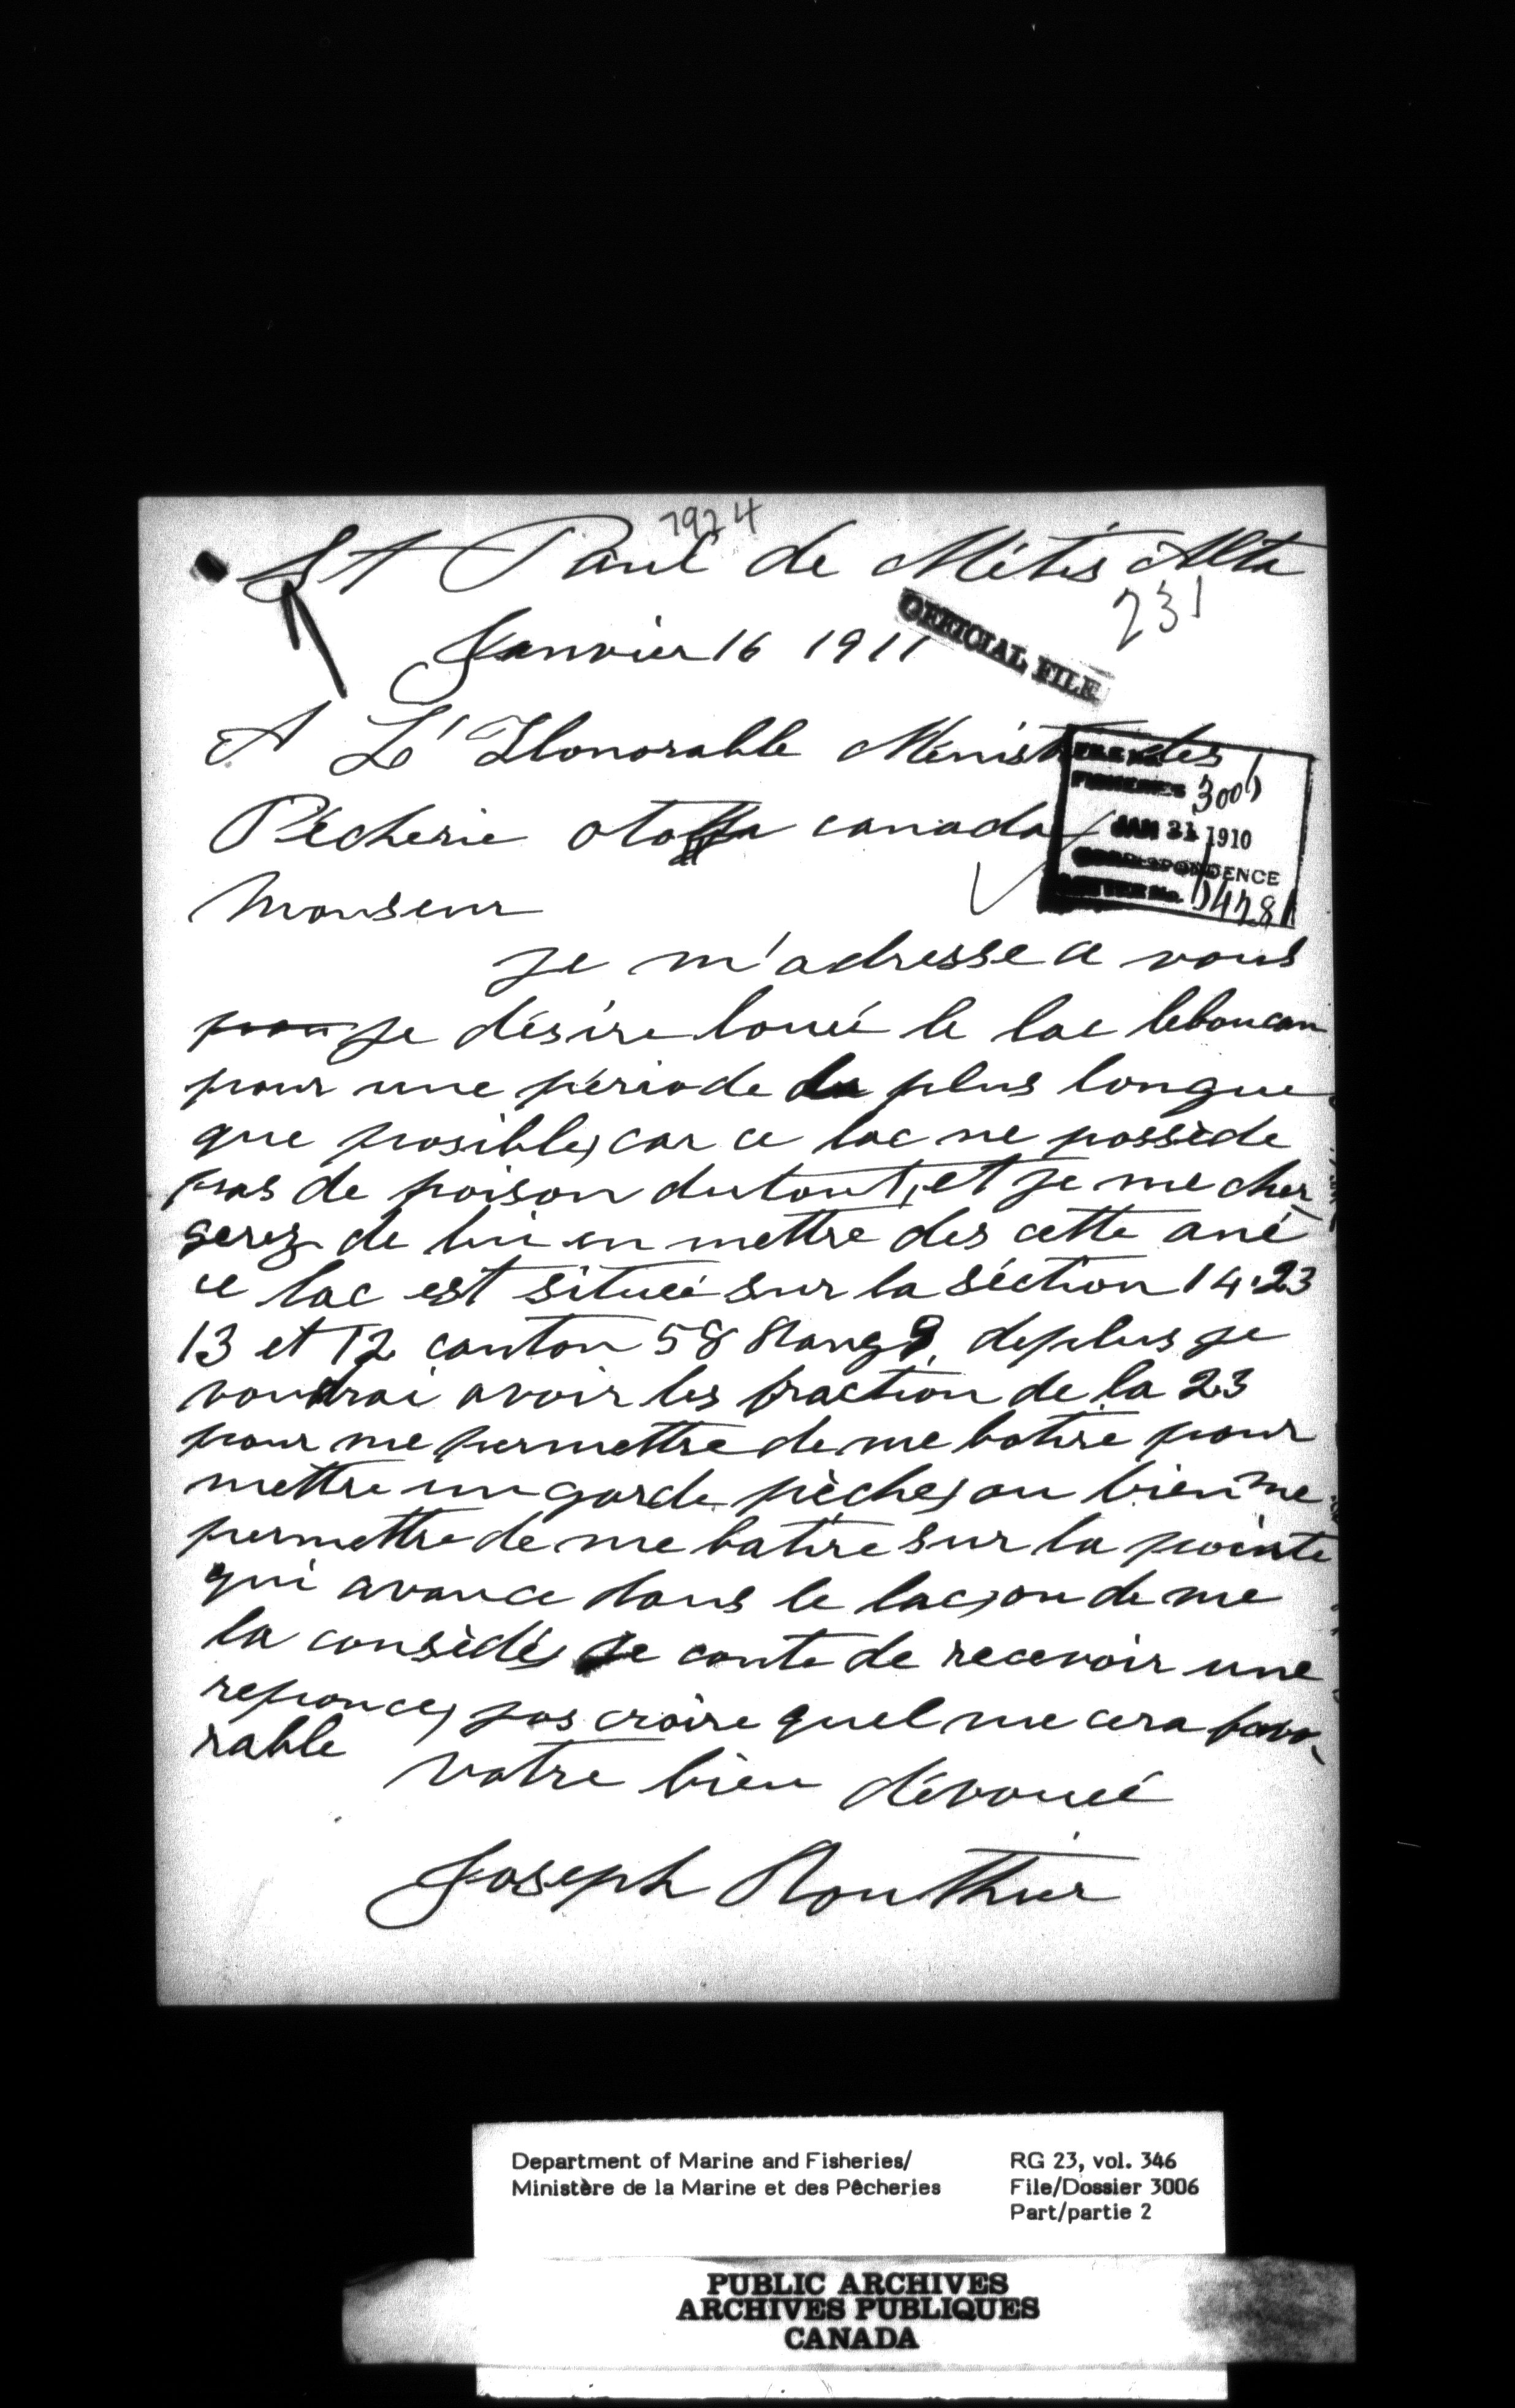 1974
St Paul de Métis Alta
231
Janvier 16 1911
OFFICIAL FILE
A L'Honorable Ménistre des
Pécherie otatta canada
FILE No.
FISHERIES 3006
JAN 31 1910
CORRESPONDENCE
Monseur
je m'adresse a vous
je désire loueé le lac leboucan
pour une périade la plus longue
que posible, car ce lac ne possède
pas de poison dutout, et je me cher
gerez de lui en mettre des cette ané
ce lac est situeé sur la séction 14.23
13 et 12 canton 58 Rang 9, deplus je
voudrai avoir les fraction de la 23
pour me permettre de me batire pour
mettre un garde pèche, ou bien me
permettre de me batire sur la pointe
qui avance dans le lac, ou de me
la consèdé, Je conte de recevoir une
reponce, jos croire quel me cera favo
rable
Votre bien dévoueé
Joseph Routhier
Department of Marine and Fisheries/
Ministère de la Marine et des Pêcheries
RG 23, vol. 346
File/Dossier 3006
Part/partie 2
PUBLIC ARCHIVES
ARCHIVES PUBLIQUES
CANADA